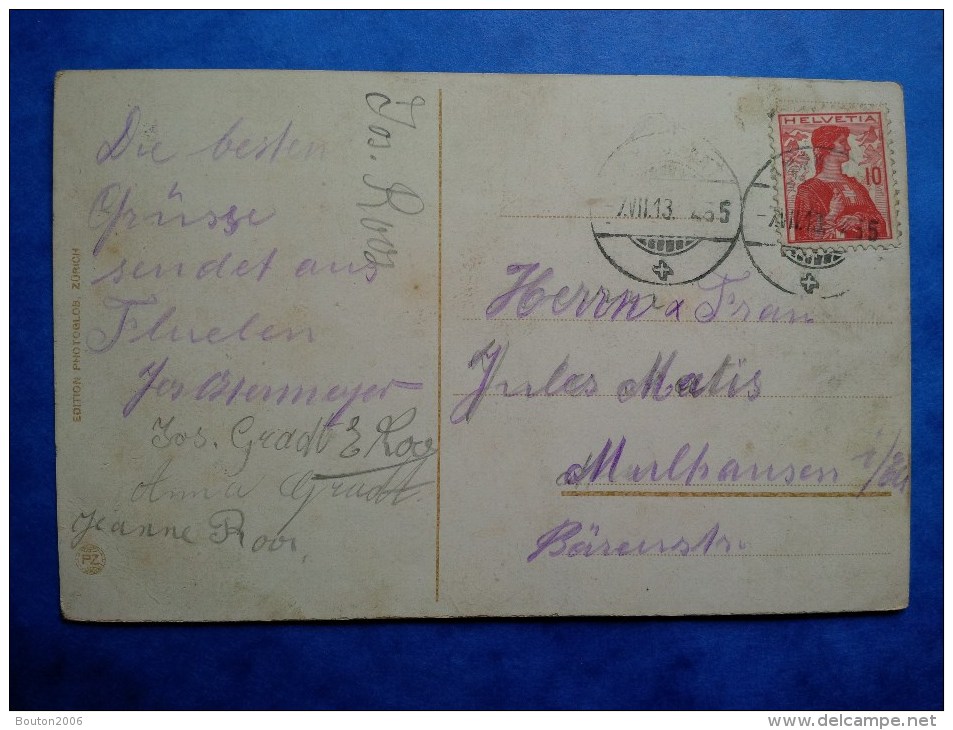 Die besten
Grüsse
sendet aus
Fluelen
Jos Ostermeyer
Jos. Gradt E Roos
Anna Gradt.
Jeanne Roos.
Jos. Roos
EDITION PHOTOGLOB. ZÜRICH
PZ
HELVETIA
10
-7.VII.13.
-7.VII.13.
Herrn & Frau
Jules Matis
Mulhausen i/Els
Bärenstr.
Bouton2006
www.delcampe.net